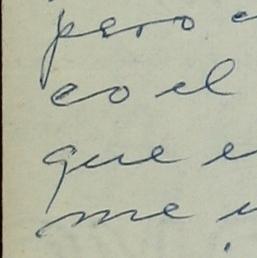 pero
co el
que
me